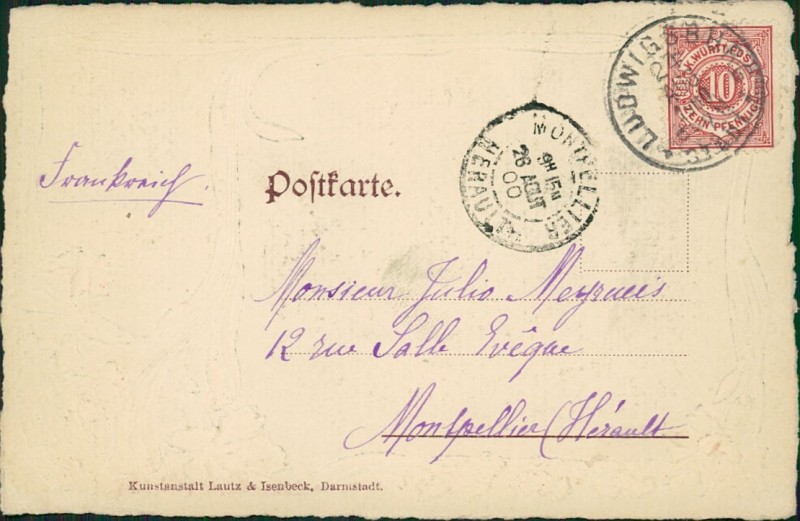 LUDWIGSBURG
K. WÜRTT. POST
10
ZEHN PFENNIG
MONTPELLIER
9H 15M
26 AOUT
00
HERAULT
Frankreich.
Postkarte.
Monsieur Julio Meyrueis
12 rue Salle Evêque
Montpellier (Hérault
Kunstanstalt Lautz & Isenbeck, Darmstadt.